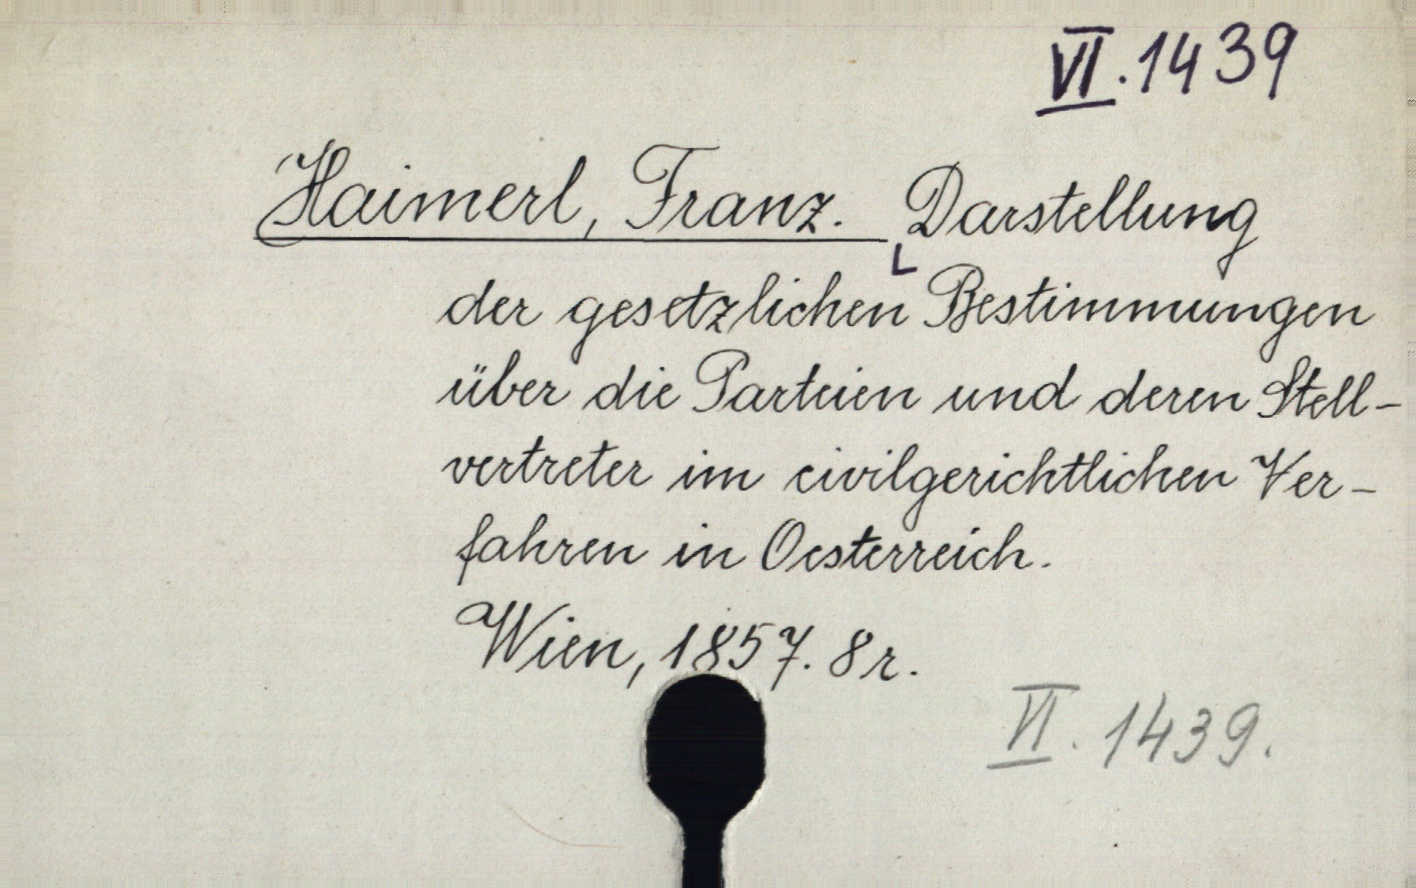 VI. 1439
Haimerl, Franz. Darstellung
der gesetzlichen Bestimmungen
über die Parteien und deren Stell-
vertreter im civilgerichtlichen Ver-
fahren in Oesterreich.
Wien, 1857. 8r.
VI. 1439.